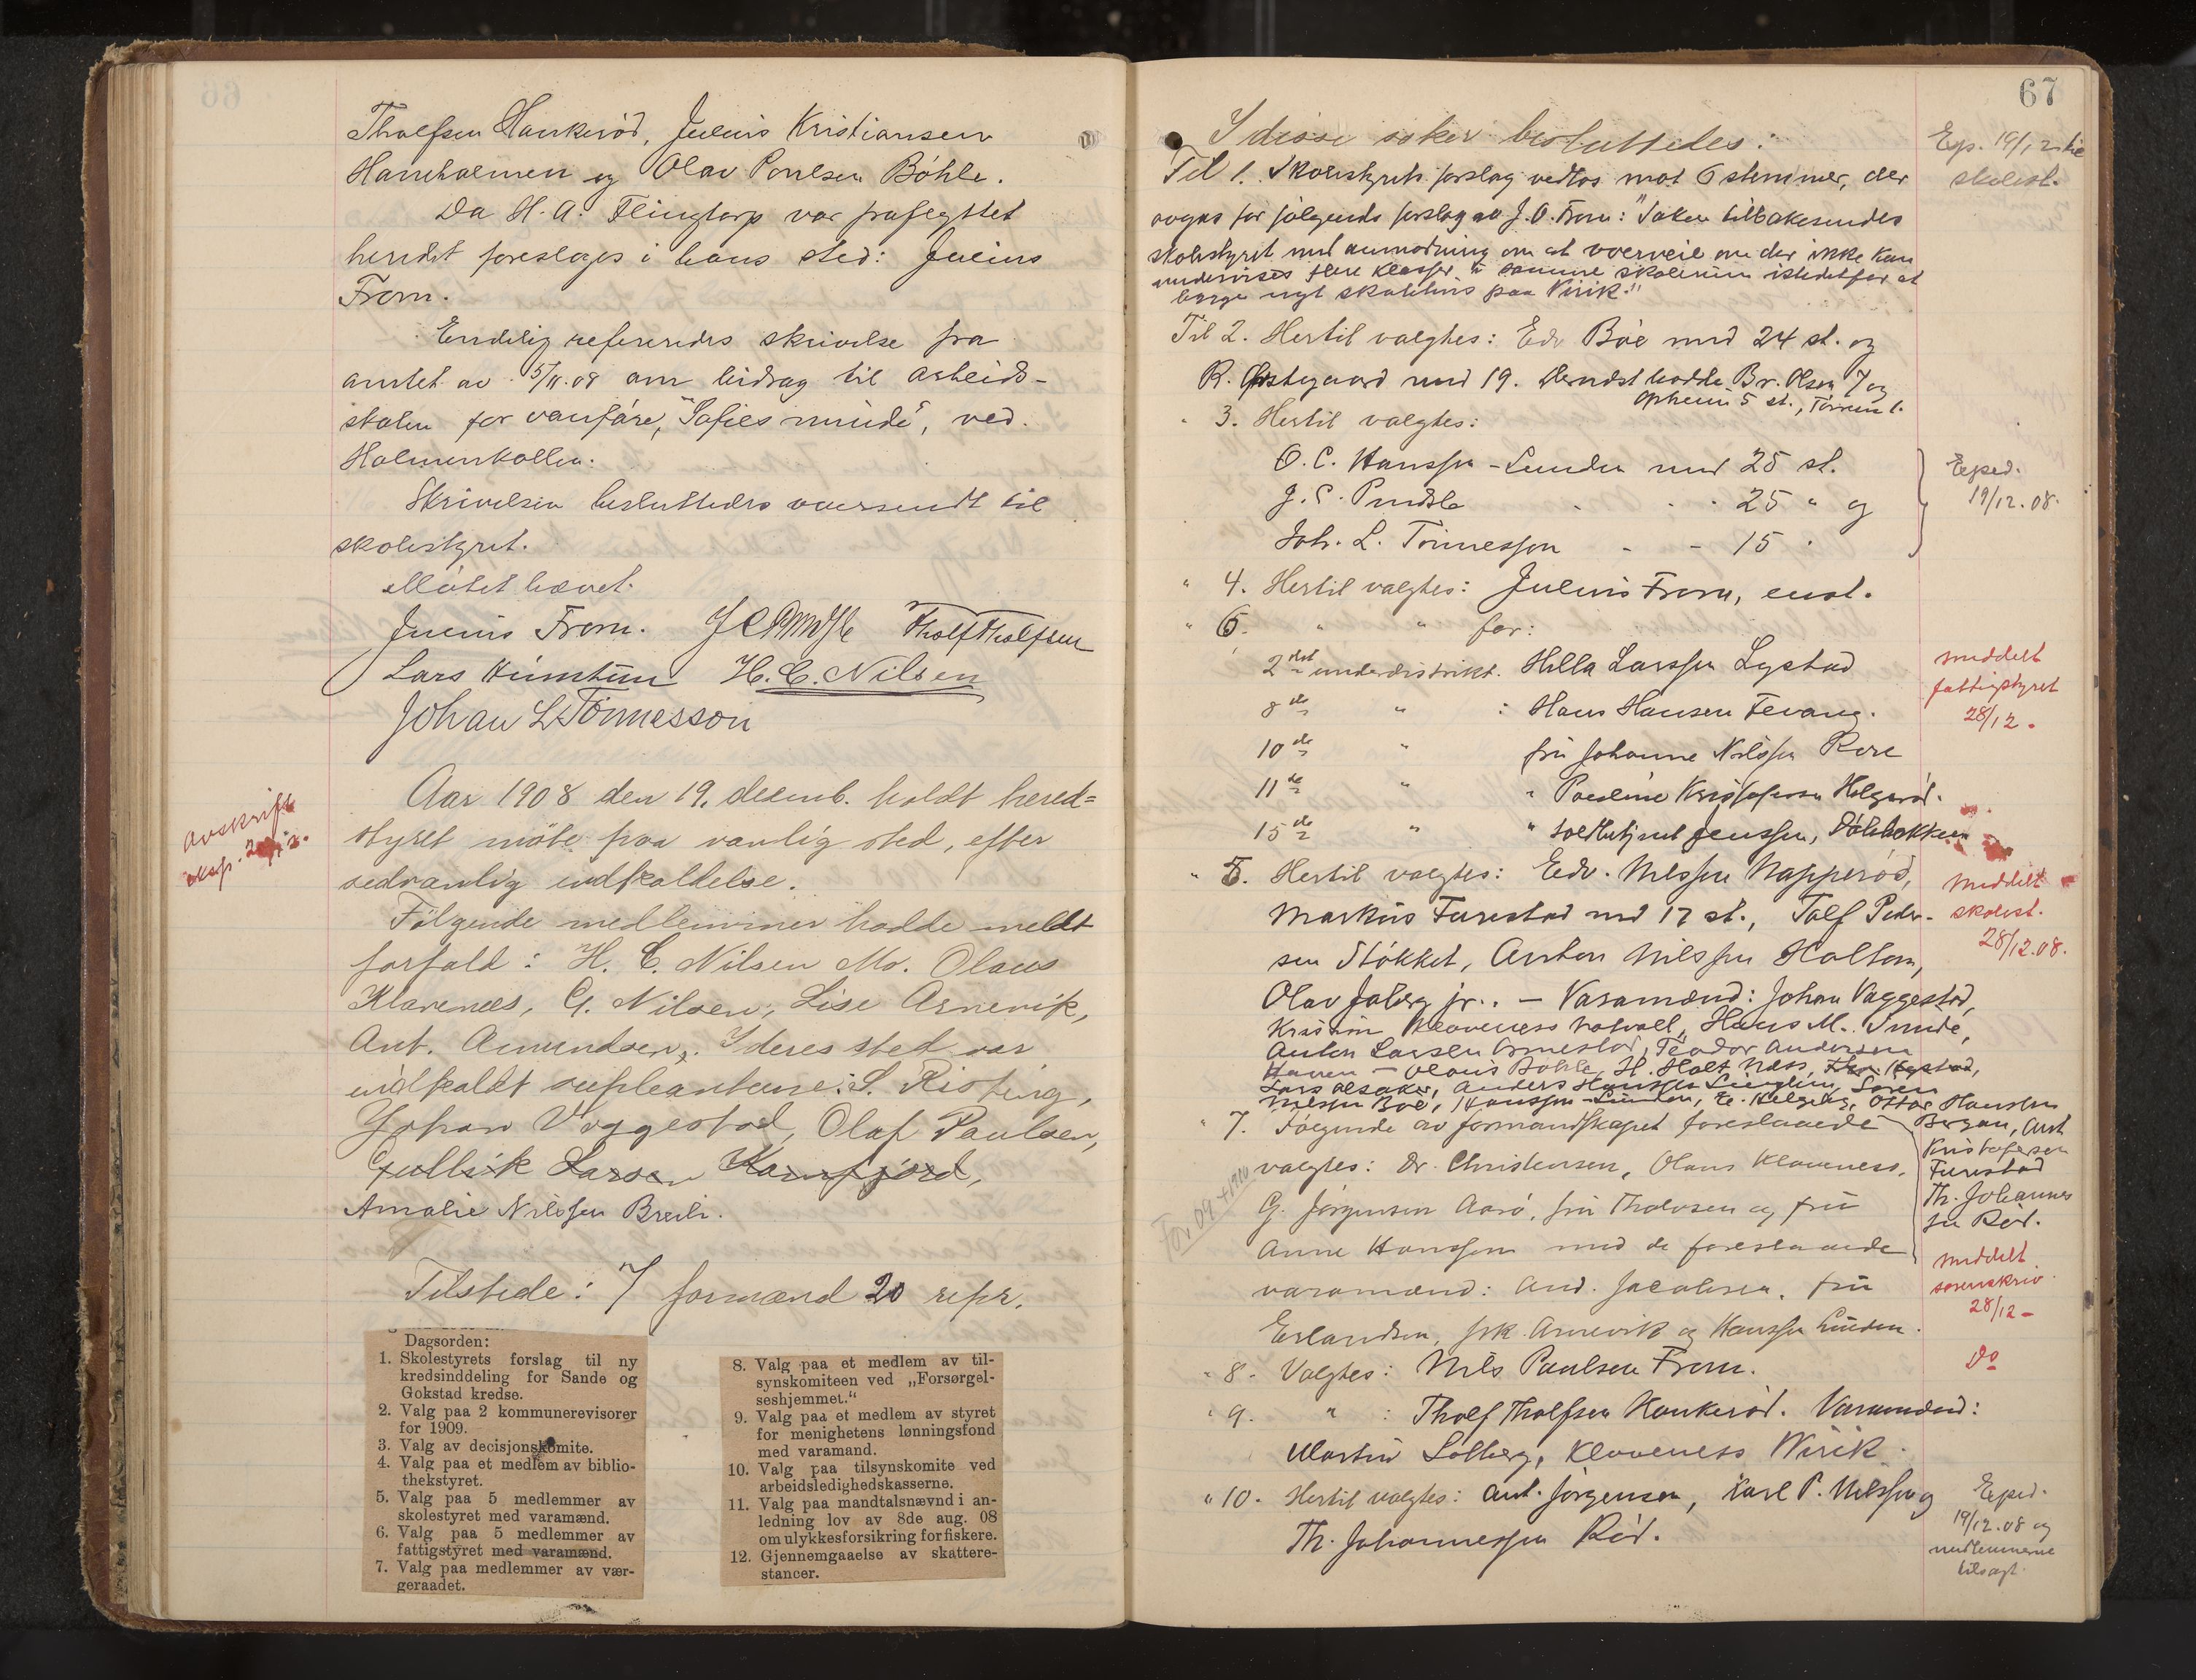 66
Tholfsen Haukerød, Julius Kristiansen
Haneholmen og Olav Poulsen Bøhle.
Da H. A. Flingtorp var fraflyttet
herredet foreslages i hans sted: Julius
From.
Endelig refereredes skrivelse fra
amtet av 5/11.08 om bidrag til arbeids-
skolen for vanføre, "Sofies minde", ved
Holmenkollen.
Skrivelsen besluttedes oversendt til
skolestyret.
Møtet hævet.
Julius From. Tholf Tholfsen
Lars Himtun H. C. Nilsen
Johan L. Tønnesson
Avskrift
eksp.
Aar 1908 den 19. desemb. holdt hered=
styret møte paa vanlig sted, efter
sedvanlig indkaldelse.
Følgende medlemmer hadde meldt
forfald: H. C. Nilsen Mo. Olaus
Klavenæs, G. Nilsen, Lise Arnevik,
Ant. Amundsen. I deres sted var
indkaldt supleantene: S. Risting,
Johan Vaggestad, Olaf Paulsen,
Gullik Larsen Kamfjord,
Amalie Nilssen Breili.
Tilstede: 7 formænd 20 repr.
Dagsorden:
1. Skolestyrets forslag til ny
kredsinddeling for Sande og
Gokstad kredse.
2. Valg paa 2 kommunerevisorer
for 1909.
3. Valg av decisjonskomite.
4. Valg paa et medlem av biblio-
thekstyret.
5. Valg paa 5 medlemmer av
skolestyret med varamænd.
6. Valg paa 5 medlemmer av
fattigstyret med varamænd.
7. Valg paa medlemmer av vær-
geraadet.
8. Valg paa et medlem av til-
synskomiteen ved „Forsørgel-
seshjemmet.“
9. Valg paa et medlem av styret
for menighetens lønningsfond
med varamand.
10. Valg paa tilsynskomite ved
arbeidsledighedskasserne.
11. Valg paa mandtalsnævnd i an-
ledning lov av 8de aug. 08
om ulykkesforsikring for fiskere.
12. Gjennemgaaelse av skattere-
stancer.
67
I disse saker besluttedes:
Exp. 19/12 til
skolest.
Til 1. Skolestyrets forslag vedtos mot 6 stemmer, der
avgas for følgende forslag av J. O. From: "Saken tilbakesendes
skolestyret med anmodning om at overveie om der ikke kan
undervises flere klasser i samme skolerum istedetfor at
bygge nyt skolehus paa Virik."
Til 2. Hertil valgtes: Edv Bøe med 24 st. og
R. Østegaard med 19. Dernæst hadde Br. Olsen 7 og
Opheim 5 st.,
" 3. Hertil valgtes:
O. C. Hanssen - Lunden med 25 st.
J. C. Pindsle " " 25 " og
Joh. L. Tønnessen - - 15 "
Exped.
19/12.08.
" 4. Hertil valgtes: Julius From, enst.
" 6. " " for:
2det underdistrikt. Hella Larssen Lystad
8de " : Hans Hansen Fevang.
10de " fru Johanne Nilssen Rore
11de " " Pauline Kristofersen Helgerød.
15de " " Jenssen,
meddelt
fattigstyret
28/12.
" 5. Hertil valgtes: Edv. Nilssen Napperød,
Markus Furustad med 17 st., Tolf Peder-
sen Støkket, Anton Nilssen Haltan,
Olav Jaberg jr.. - Varamænd: Johan Vaggestad,
Kristian Klaveness Hans M. Sunde,
Anton Larsen Ormestad, Teodor Andersen
Haven - Olaus Bøhle, H. Holt Næss,
Lars Alsaker, Anders Hanssen Søren
Nilssen Bøe, Hanssen-Lunden, Ottar Hanssen
Bergan, Ant
Kristofersen
Furustad
Th. Johannes
sen Rød.
Meddelt
skolest.
28/12.08.
" 7. Følgende av formandskapet foreslaaede
valgtes: Dr. Christensen, Olaus Klaveness,
G. Jørgensen Aarø, fru Tholvsen og fru
Anne Hanssen med de foreslaaede
varamænd: And. Jacobsen, fru
Erlandsen, frk. Arnevik og Hanssen Lunden.
For 09 + 1910
meddelt
sorenskriv.
28/12 -
" 8. Valgtes: Nils Paulsen From.
Do
" 9. " : Tholf Tholfsen Haukerød. Varamænd:
Martin Solberg, Klaveness Wirik.
" 10. Hertil valgtes: Ant. Jørgensen, Karl P. Nilssen og
Th. Johannessen Rød.
Exped.
19/12.08 og
medlemmerne
tilsagt.